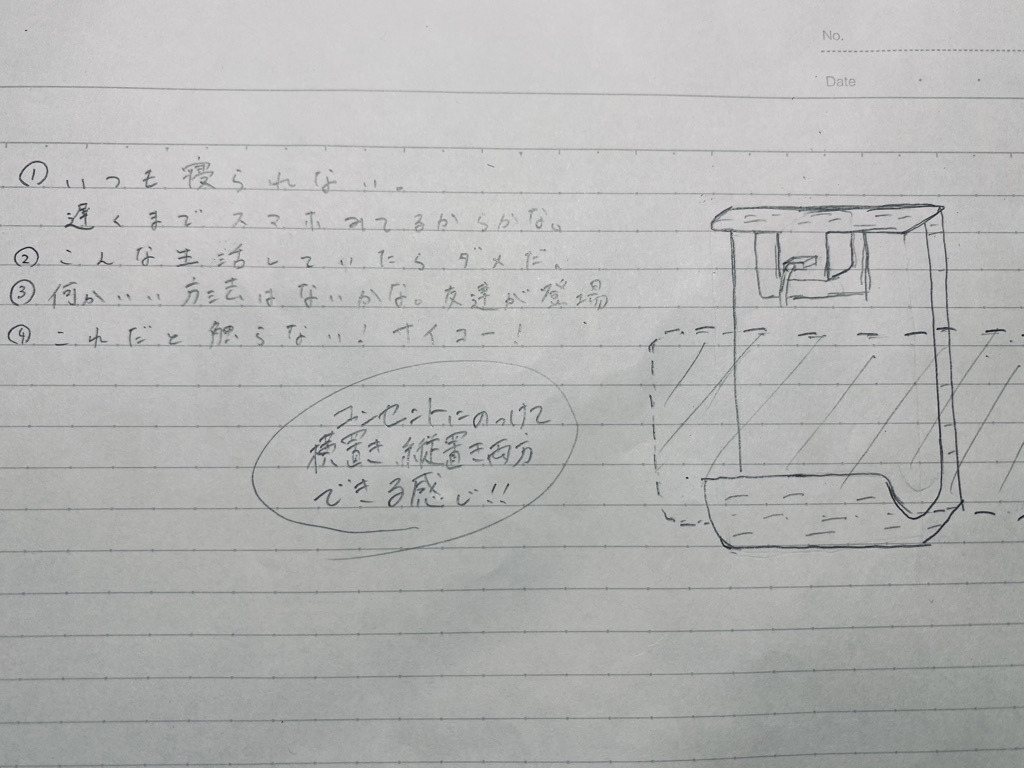 No.
Date
① いつも寝られない。
遅くまでスマホみてるからかな。
② こんな生活していたらダメだ。
③ 何かいい方法はないかな。友達が登場
④ これだと触らない!ナイコー!
コンセントにのっけて
横置き、縦置き両方
できる感じ!!